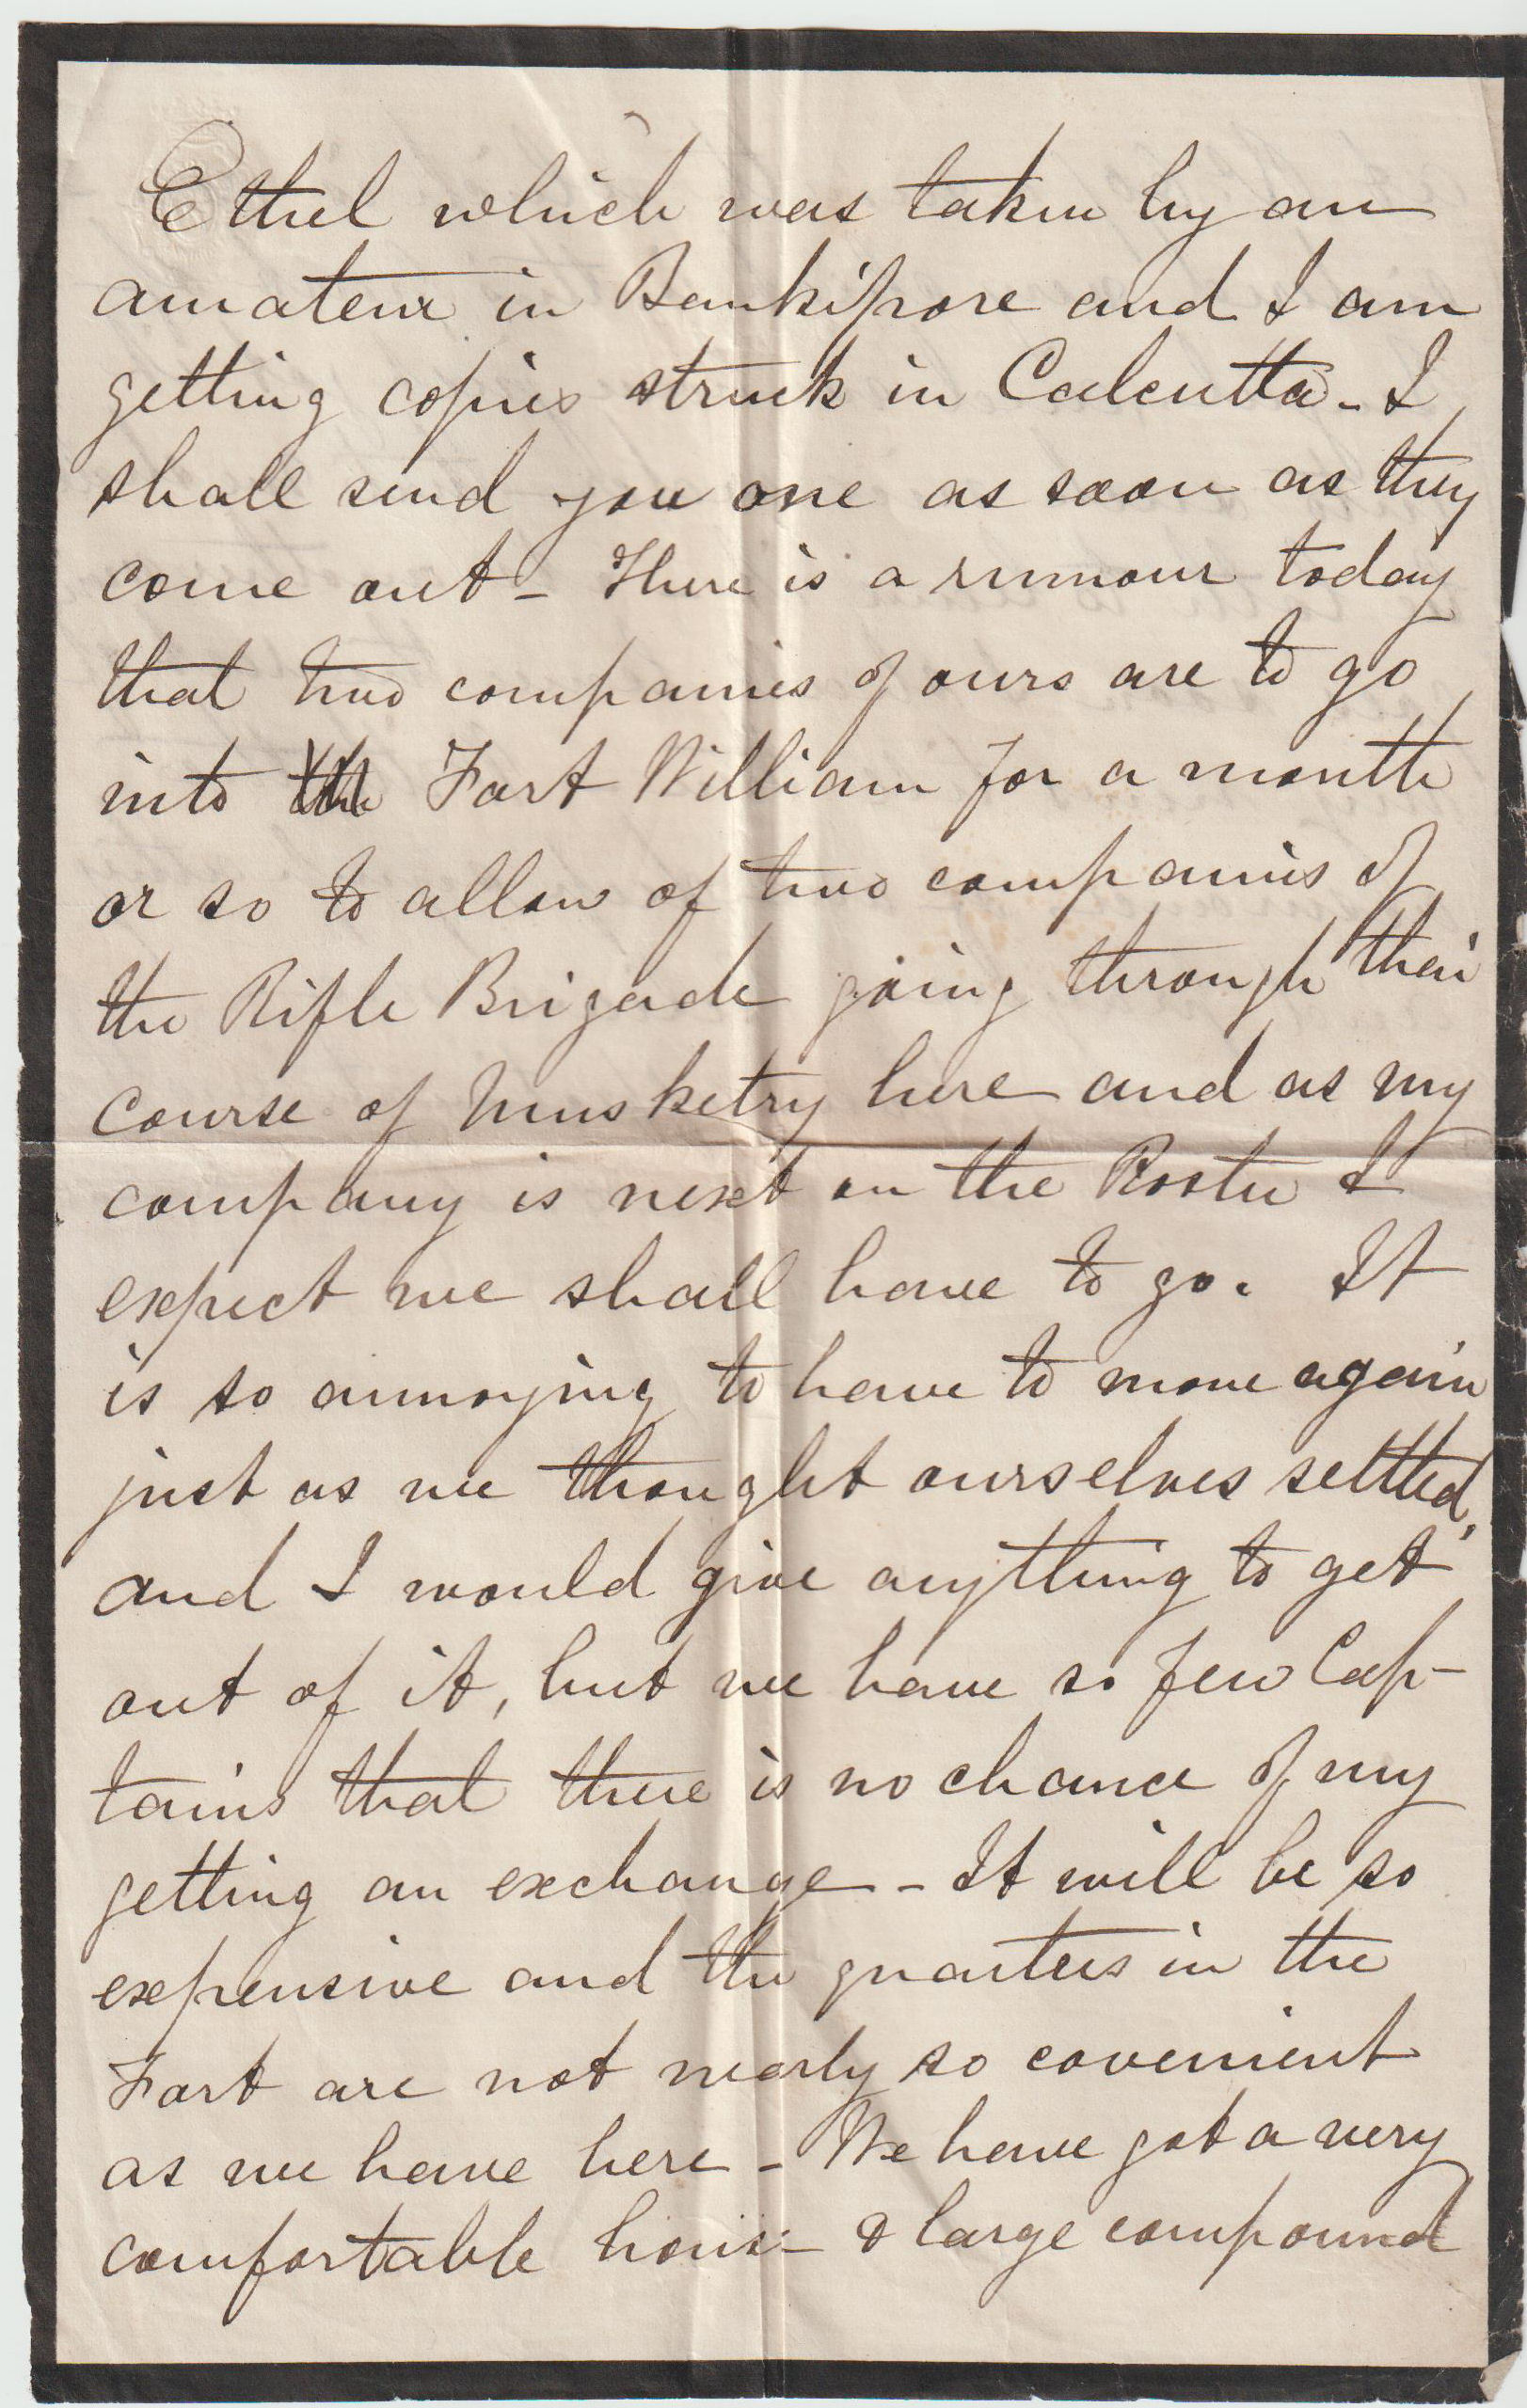 Ethel which was taken by an
amateur in Bankipore and I am
getting copies struck in Calcutta - I
shall send you one as soon as they
come out - There is a rumour today
that two companies of ours are to go
into the Fort William for a month
or so to allow of two companies of
the Rifle Brigade going through their
course of Musketry here and as my
company is next on the Roster I
expect we shall have to go. It
is so annoying to have to move again
just as we thought ourselves settled,
and I would give anything to get
out of it, but we have so few Cap-
tains that there is no chance of my
getting an exchange - It will be so
expensive and the quarters in the
Fort are not nearly so covenient
as we have here - We have got a very
comfortable house & large compound